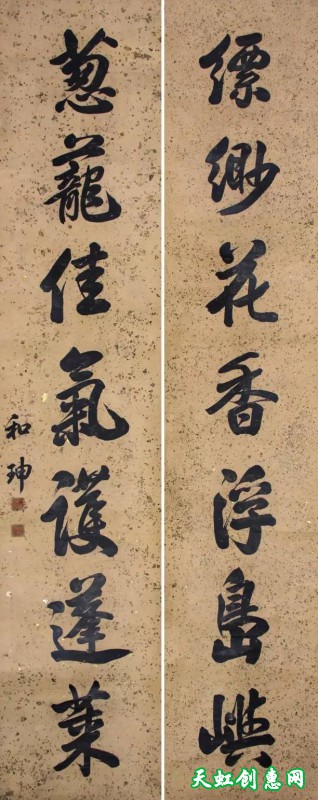 缥缈花香浮島嶼
葱蘢佳氣護蓬萊
和珅
天虹创惠网